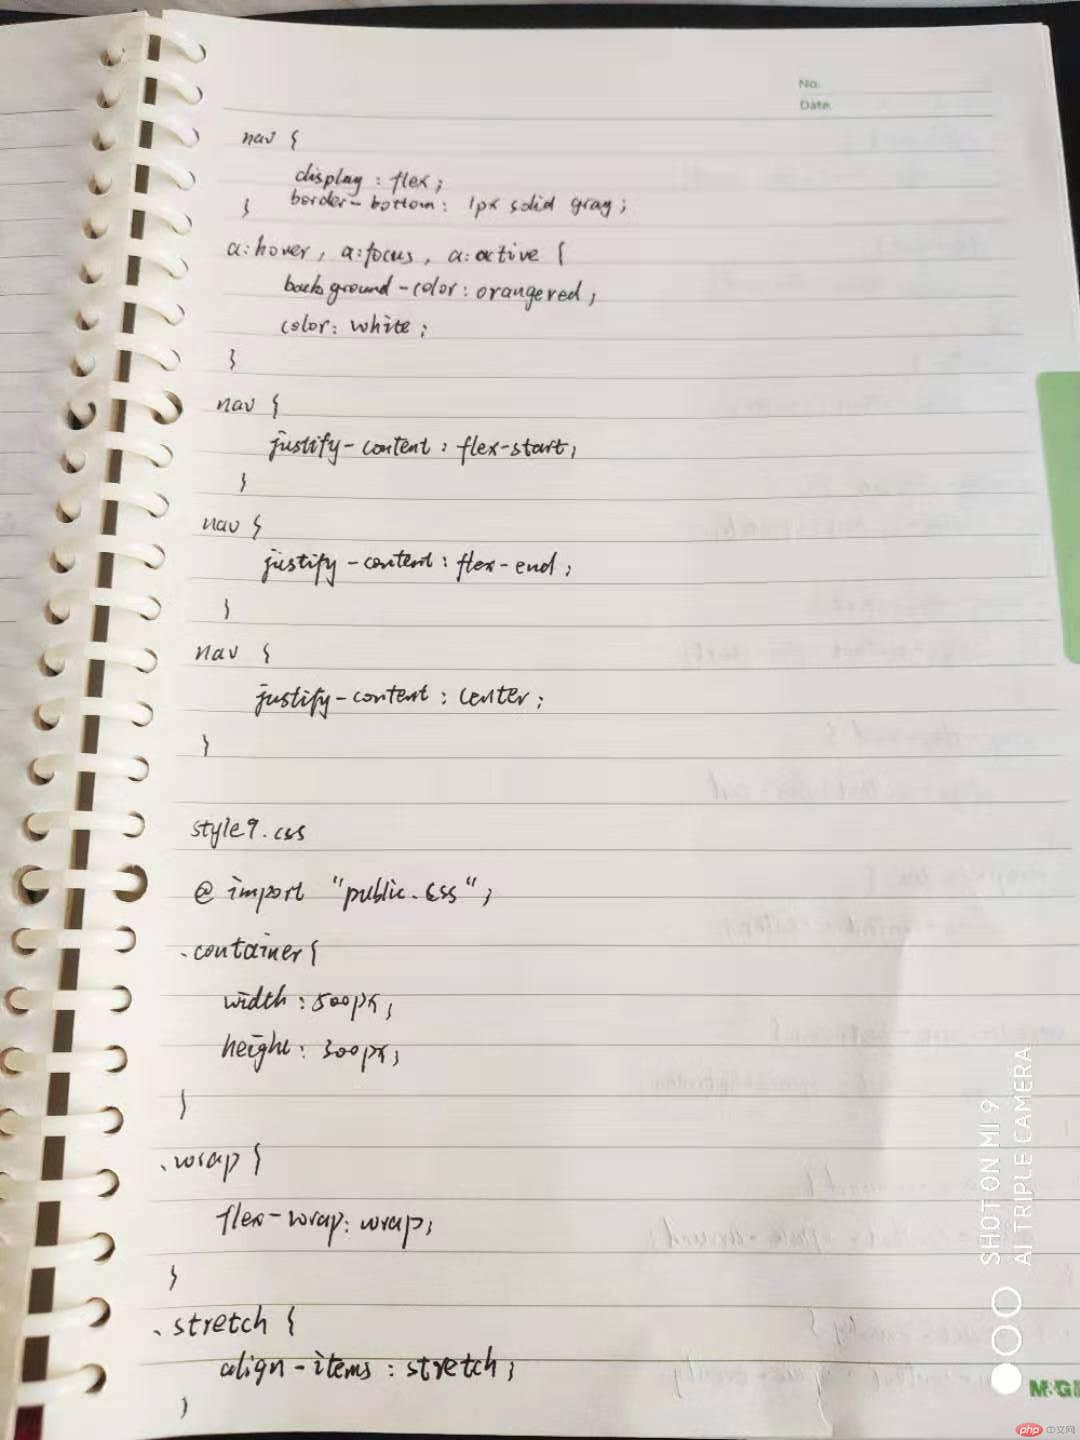 No.
Date.
nav {
display : flex ;
border-bottom : 1px solid gray ;
}
a:hover , a:focus , a:active {
background-color : orangered ;
color : white ;
}
nav {
justify-content : flex-start ;
}
nav {
justify-content : flex-end ;
}
nav {
justify-content : center ;
}
style9.css
@ import "public.css" ;
.container {
width : 500px ;
height : 300px ;
}
.wrap {
flex-wrap : wrap ;
}
.stretch {
align-items : stretch ;
}
SHOT ON MI 9
AI TRIPLE CAMERA
M&G
php 中文网